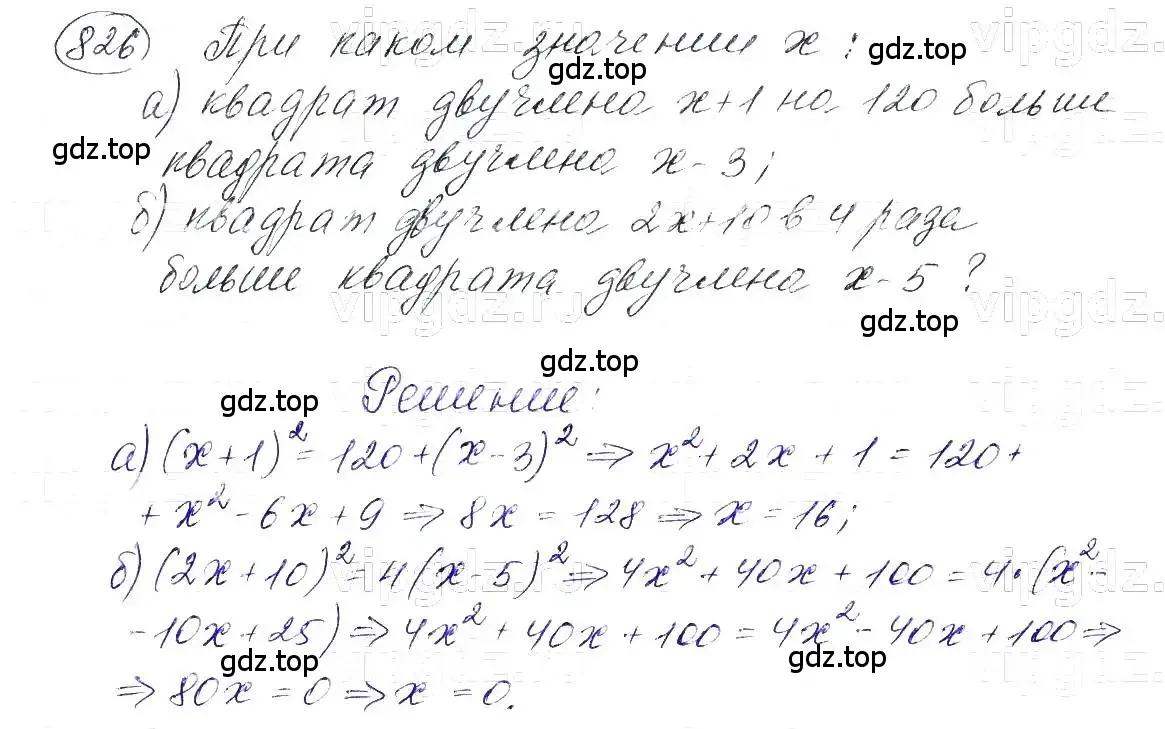 826 При каком значении x:
gdz.top gdz.top
а) квадрат двучлена x+1 на 120 больше
gdz.top
квадрата двучлена x-3;
б) квадрат двучлена 2x+10 в 4 раза
больше квадрата двучлена x-5?
vipgdz.ru vipgdz.ru
gdz.top
gdz.top
Решение:
gdz.top
а) (x+1)²=120+(x-3)² ⇒ x²+2x+1=120+
+x²-6x+9 ⇒ 8x=128 ⇒ x=16;
б) (2x+10)²=4(x-5)² ⇒ 4x²+40x+100=4·(x²-
-10x+25) ⇒ 4x²+40x+100=4x²-40x+100 ⇒
gdz.top gdz.top
⇒ 80x=0 ⇒ x=0.